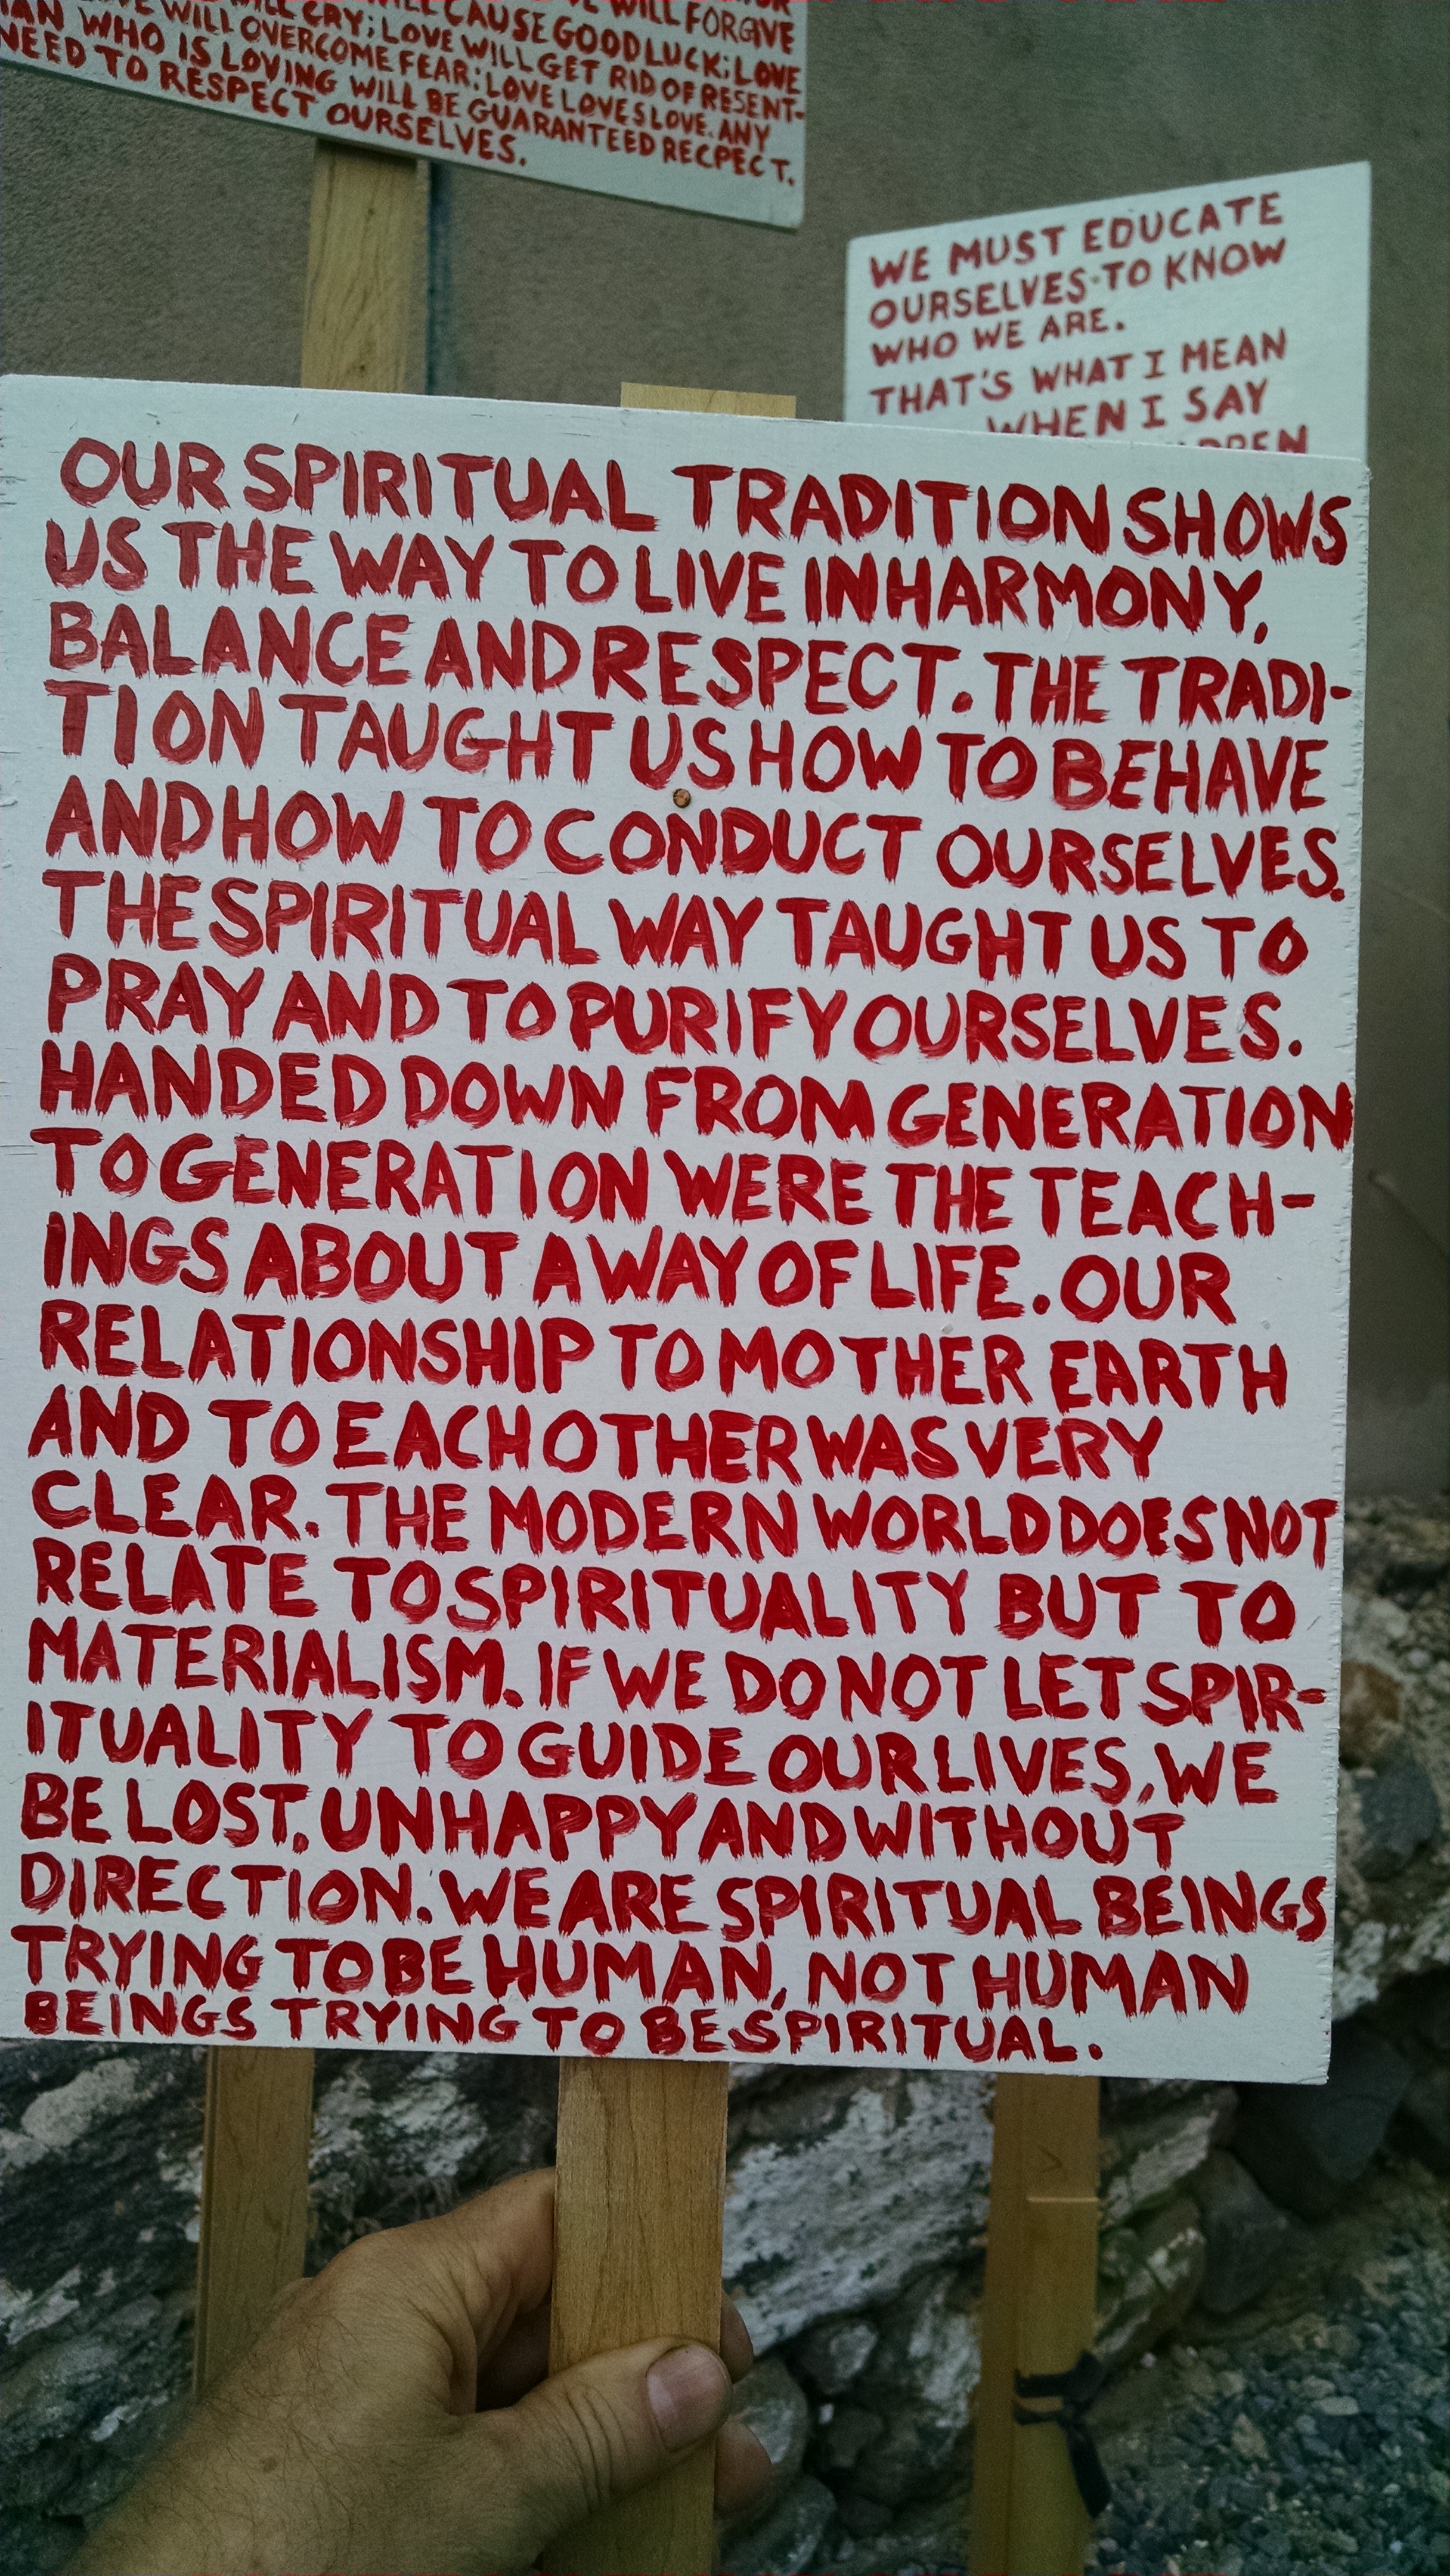 WILL CRY; LOVE WILL GET RID OF RESENT-
WILL OVERCOME FEAR; LOVE LOVES LOVE. ANY
MAN WHO IS LOVING WILL BE GUARANTEED RECPECT.
NEED TO RESPECT OURSELVES.
WE MUST EDUCATE
OURSELVES TO KNOW
WHO WE ARE.
THAT'S WHAT I MEAN
WHEN I SAY
OUR SPIRITUAL TRADITION SHOWS
US THE WAY TO LIVE IN HARMONY,
BALANCE AND RESPECT. THE TRADI-
TION TAUGHT US HOW TO BEHAVE
AND HOW TO CONDUCT OURSELVES.
THE SPIRITUAL WAY TAUGHT US TO
PRAY AND TO PURIFY OURSELVES.
HANDED DOWN FROM GENERATION
TO GENERATION WERE THE TEACH-
INGS ABOUT A WAY OF LIFE. OUR
RELATIONSHIP TO MOTHER EARTH
AND TO EACH OTHER WAS VERY
CLEAR. THE MODERN WORLD DOES NOT
RELATE TO SPIRITUALITY BUT TO
MATERIALISM. IF WE DO NOT LET SPIR-
ITUALITY TO GUIDE OUR LIVES, WE
BE LOST, UNHAPPY AND WITHOUT
DIRECTION. WE ARE SPIRITUAL BEINGS
TRYING TO BE HUMAN, NOT HUMAN
BEINGS TRYING TO BE SPIRITUAL.